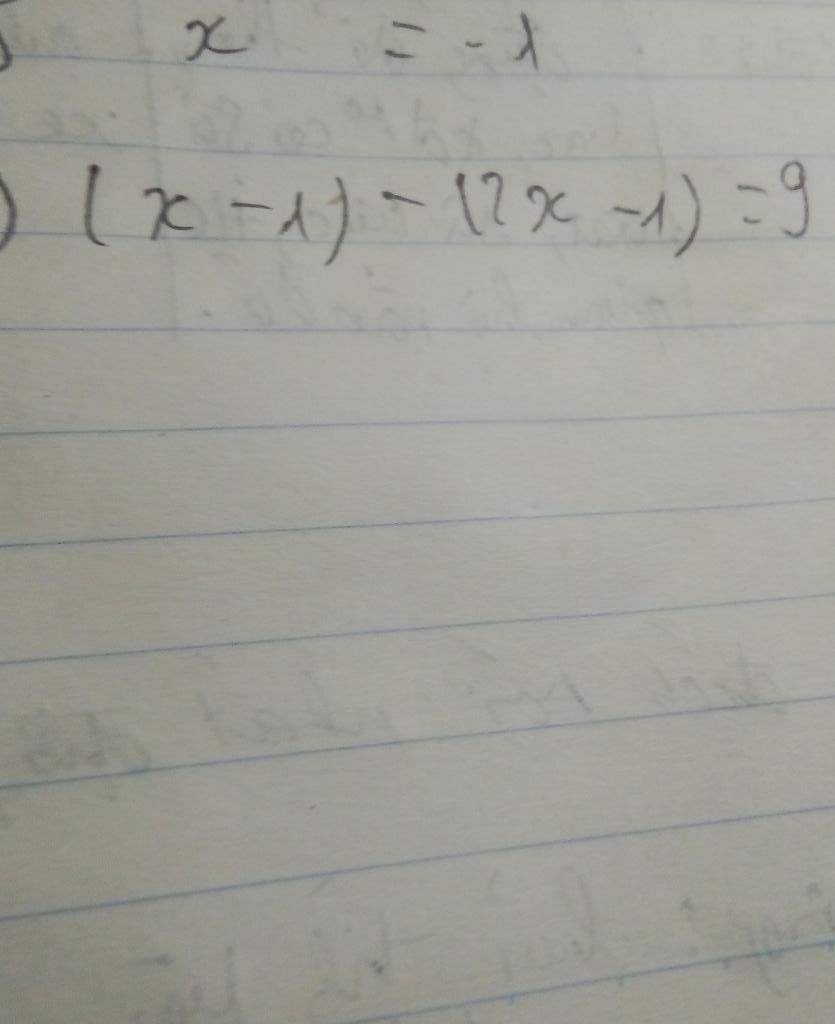 x = -1
) (x - 1) - (2x - 1) = 9